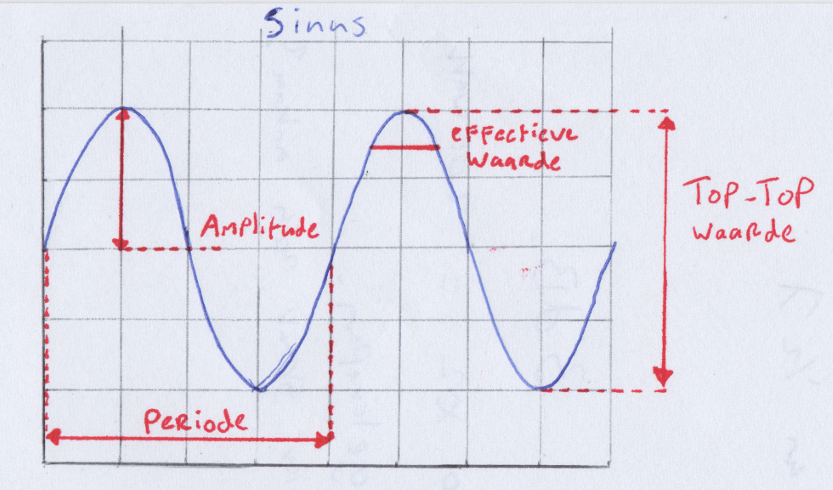 Sinus
effectieve
waarde
Top-Top
waarde
Amplitude
Periode